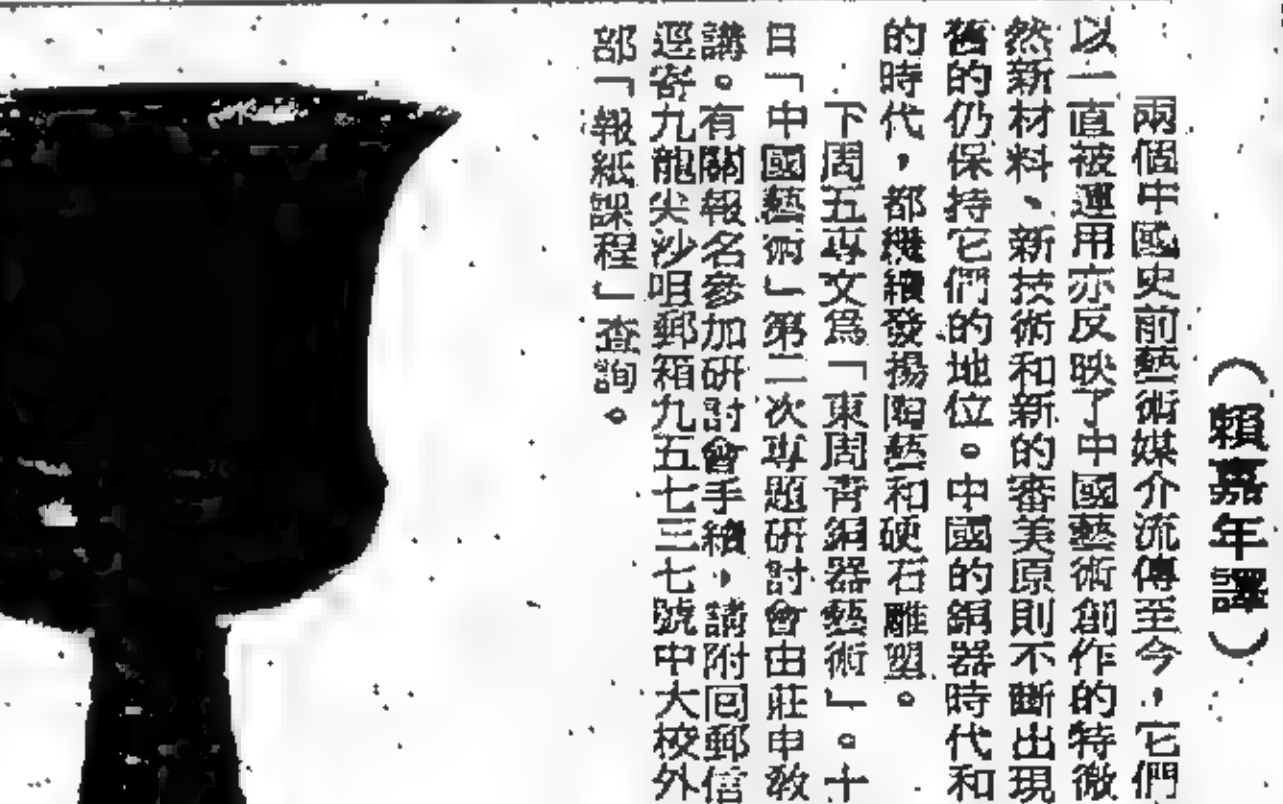 （賴嘉年譯）
兩個中國史前藝術媒介流傳至今，它們
以一直被運用亦反映了中國藝術創作的特徵
然新材料、新技術和新的審美原則不斷出現
舊的仍保持它們的地位。中國的銅器時代和
的時代，都繼續發揚陶藝和硬石雕塑。
下周五專文爲「東周青銅器藝術」。十
日「中國藝術」第二次專題研討會由莊申教
講。有關報名參加研討會手續，請附回郵信
逕寄九龍尖沙咀郵箱九五七三七號中大校外
部「報紙課程」查詢。